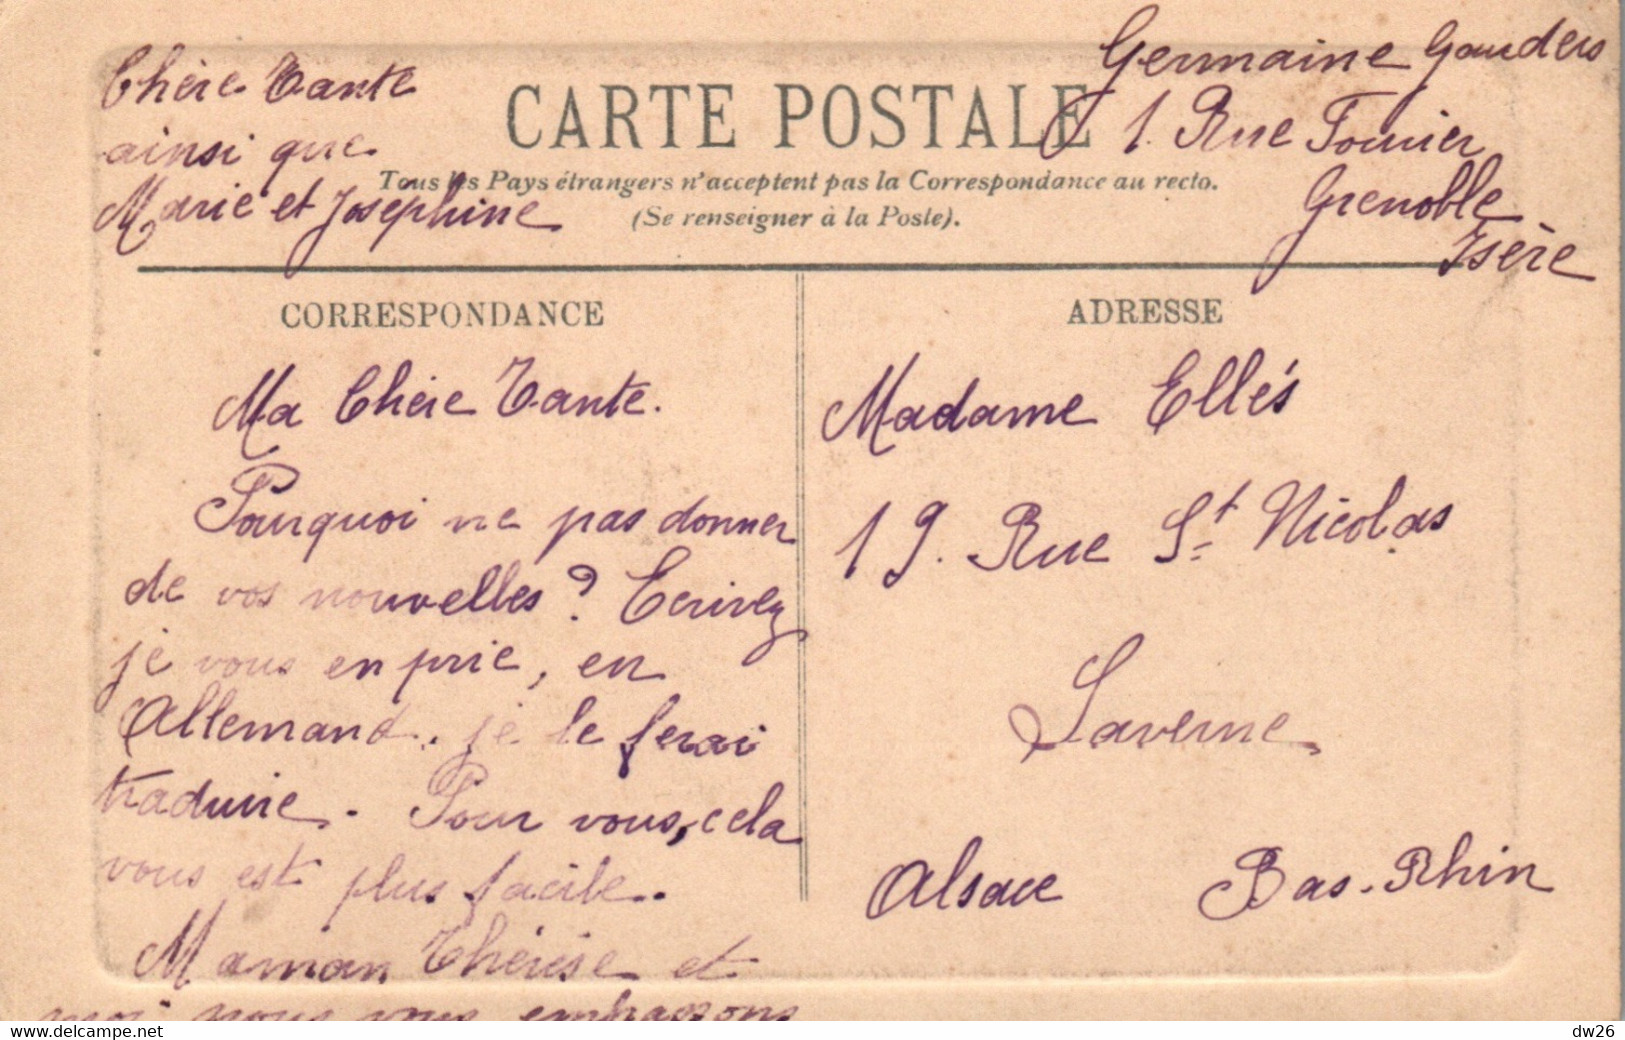 CARTE POSTALE
Tous les Pays étrangers n'acceptent pas la Correspondance au recto.
(Se renseigner à la Poste).
CORRESPONDANCE
Ma Chère Tante.
Pourquoi ne pas donner
de vos nouvelles? Ecrivez
je vous en prie, en
Allemand. je le ferai
traduire. Pour vous, cela
vous est plus facile.
Maman Thérèse et
moi nous vous embrassons
Chère Tante
ainsi que
Marie et Josephine
Germaine Gauders
1. Rue Fourier
Grenoble
Isère
ADRESSE
Madame Ellés
19. Rue St Nicolas
Saverne
Alsace Bas-Rhin
www.delcampe.net
dw26